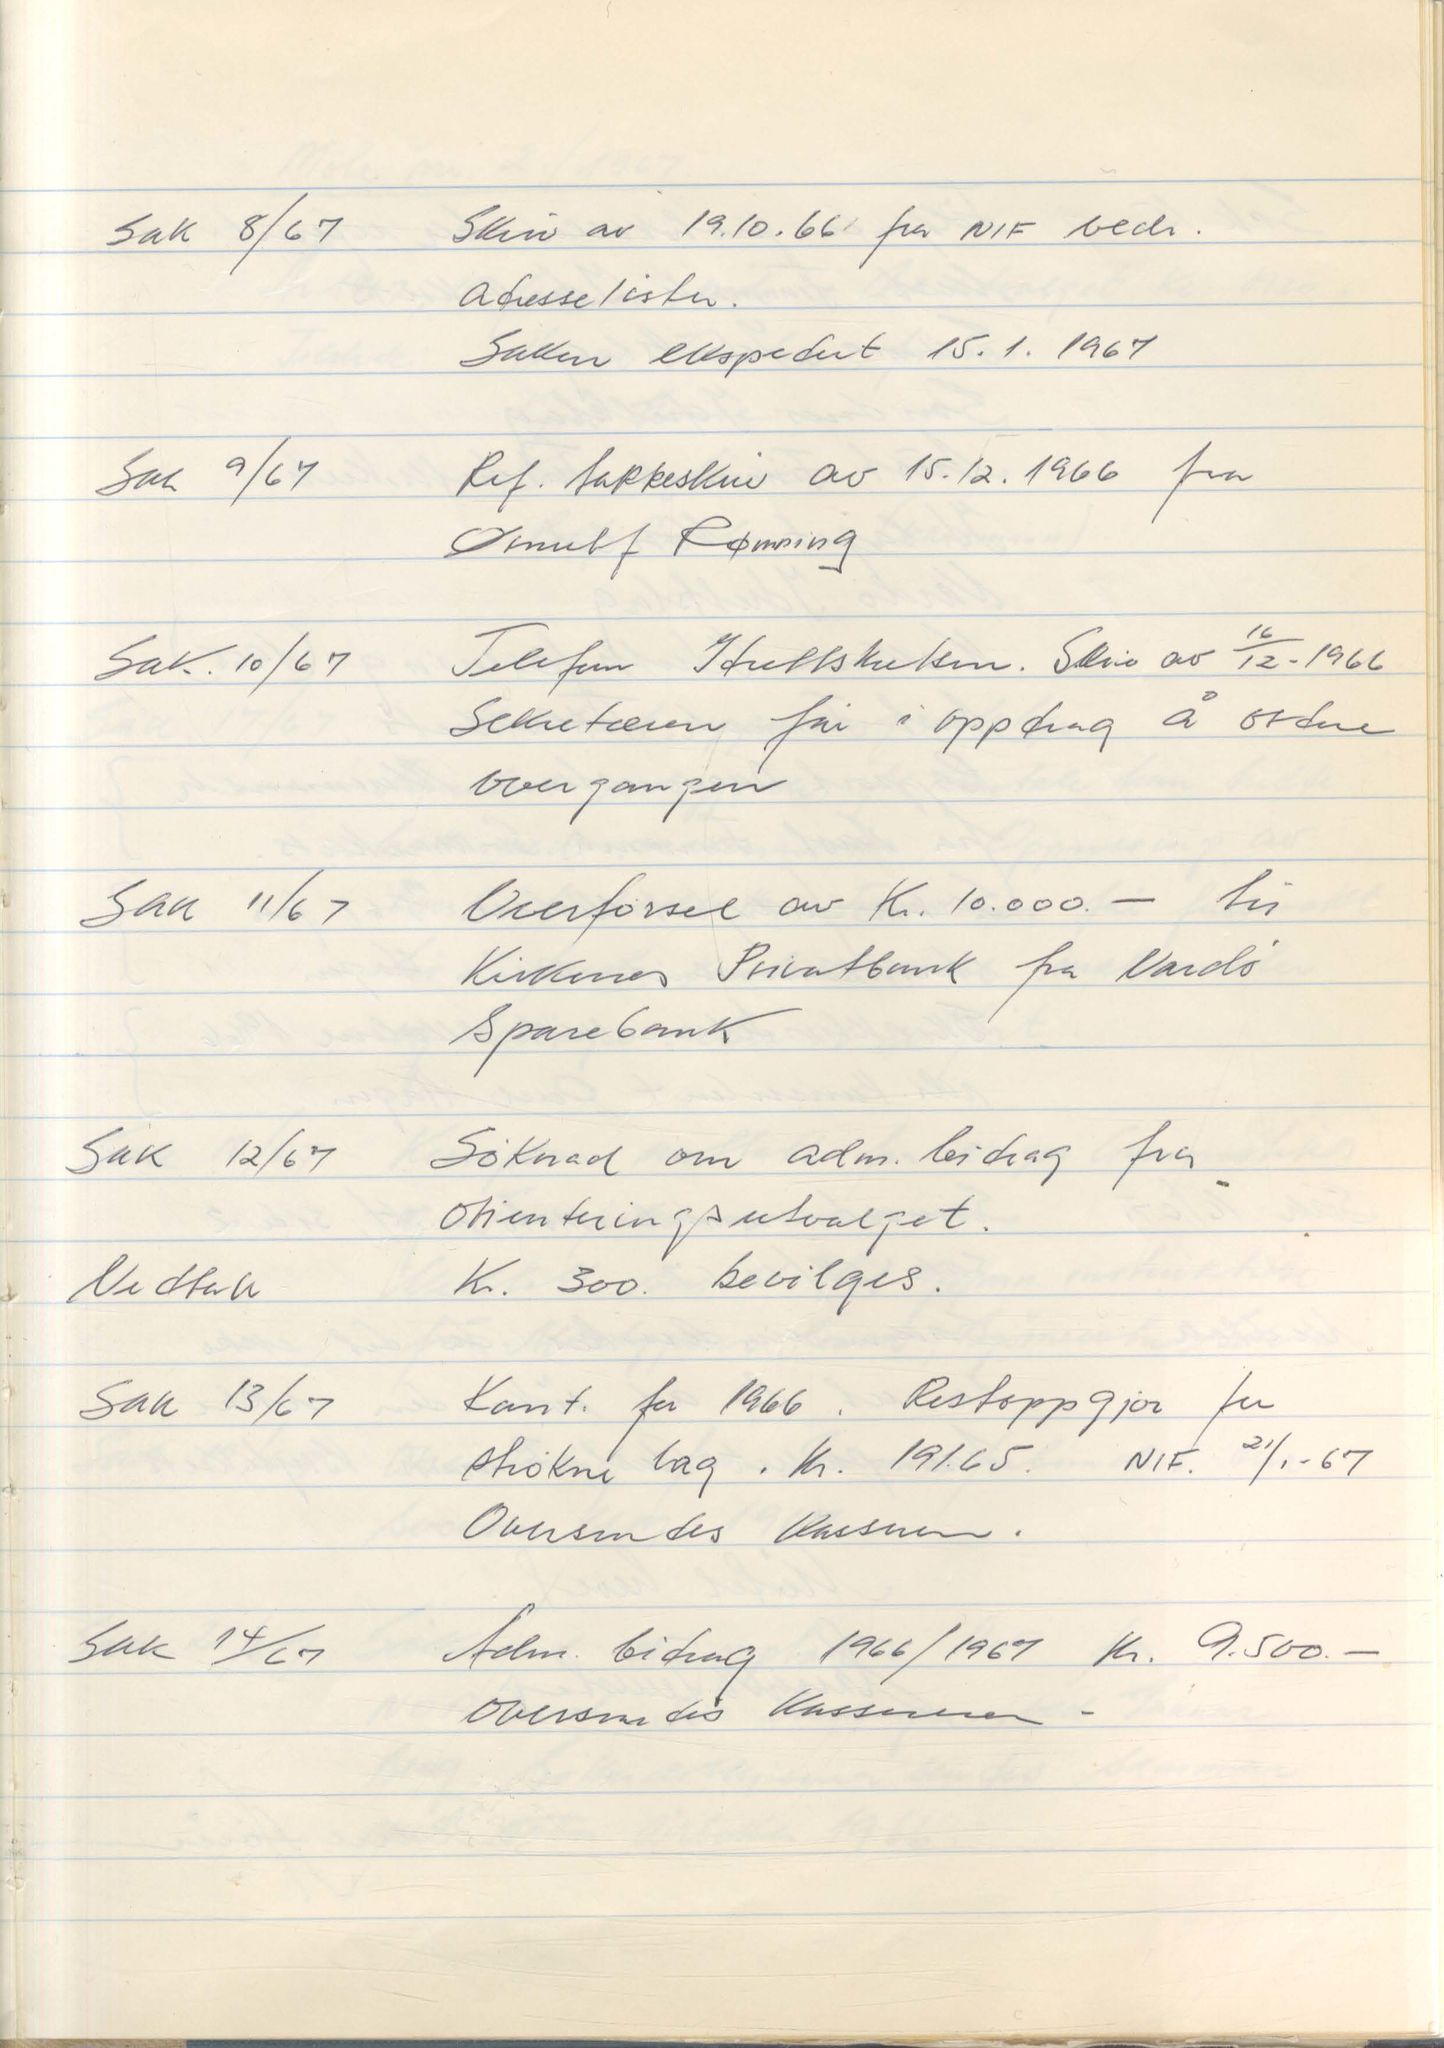 Sak 8/67 Skriv av 19.10.66 fra NIF vedr.
adresselister.
Saken ekspedert 15.1.1967
Sak 9/67 Ref. takkeskriv av 15.12.1966 fra
Ørnulf Rønning
Sak. 10/67 Telefon Idrettskretsen. Skriv av 16/12-1966
Sekretæren får i oppdrag å ordne
overgangen
Sak 11/67 Overførsel av Kr. 10.000.- til
Kirkenes Privatbank fra Vardø
Sparebank
Sak 12/67 Søknad om adm. bidrag fra
orienteringsutvalget.
Vedtak Kr. 300. bevilges.
Sak 13/67 Kont. for 1966. Restoppgjør for
strøkne lag. Kr. 191.65. NIF. 21/1-67
Oversendes Kasseren.
Sak 14/67 Adm. bidrag 1966/1967 Kr. 9.500.-
oversendes Kassereren -